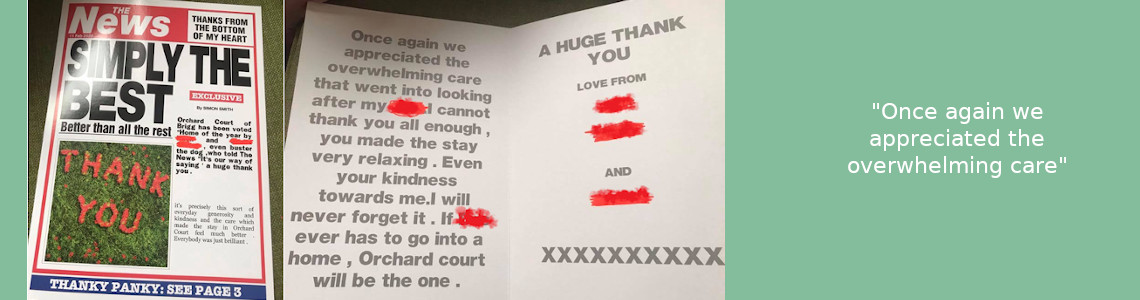 THE
News
THANKS FROM
THE BOTTOM
OF MY HEART
SIMPLY THE
BEST
EXCLUSIVE
By SIMON SMITH
Better than all the rest
Orchard Court of
Brigg has been voted
"Home of the year by
and
, even buster
the dog ,who told The
News "It's our way of
saying ' a huge thank
you .
THANK
YOU
It's precisely this sort of
everyday generosity and
kindness and the care which
made the stay in Orchard
Court feel much better .
Everybody was just brilliant .
THANKY PANKY: SEE PAGE 3
Once again we
appreciated the
overwhelming care
that went into looking
after my I cannot
thank you all enough ,
you made the stay
very relaxing . Even
your kindness
towards me.I will
never forget it . If
ever has to go into a
home , Orchard court
will be the one .
A HUGE THANK
YOU
LOVE FROM
AND
XXXXXXXXXX
"Once again we
appreciated the
overwhelming care"